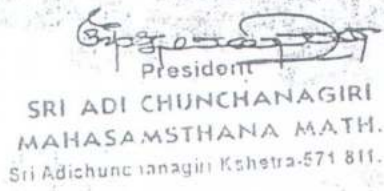 President
SRI ADI CHUNCHANAGIRI
MAHASAMSTHANA MATH.
Sri Adichunchanagiri Kshetra-571 811.